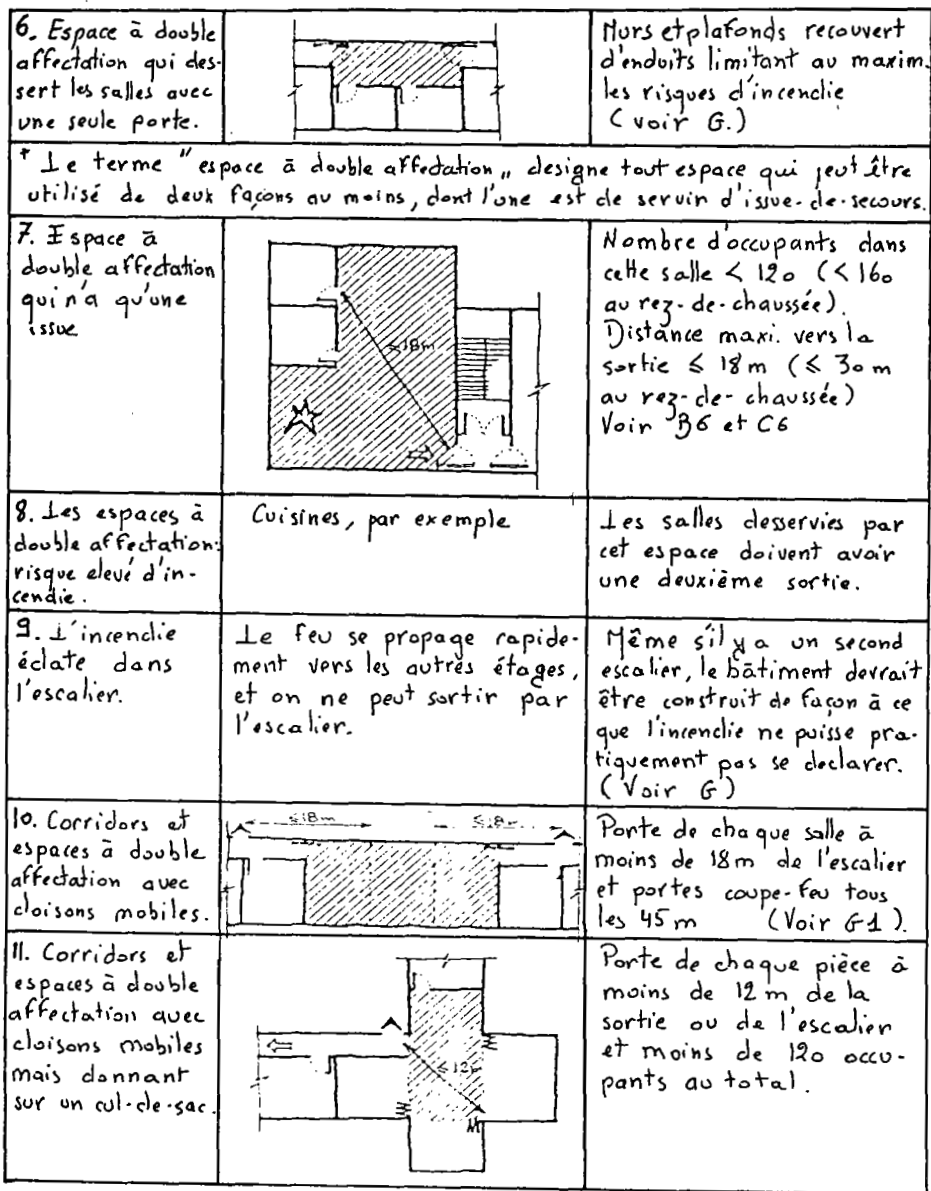 6. Espace à double
affectation qui des-
sert les salles avec
une seule porte.
Murs et plafonds recouvert
d'enduits limitant au maxim.
les risques d'incendie
(voir G.)
* Le terme "espace à double affectation„ designe tout espace qui peut être
utilisé de deux façons au moins, dont l'une est de servin d'issue-de-secours.
7. Espace à
double affectation
qui n'a qu'une
issue
≤18m
Nombre d'occupants dans
cette salle < 120 (< 160
au rez-de-chaussée).
Distance maxi. vers la
sortie ≤ 18 m (≤ 30 m
au rez-de-chaussée)
Voir B6 et C6
8. Les espaces à
double affectation:
risque elevé d'in-
cendie.
Cuisines, par exemple
Les salles desservies par
cet espace doivent avoir
une deuxième sortie.
9. L'incendie
éclate dans
l'escalier.
Le feu se propage rapide-
ment vers les autres étages,
et on ne peut sortir par
l'escalier.
Même s'il y a un second
escalier, le bâtiment devrait
être construit de façon à ce
que l'incendie ne puisse pra-
tiquement pas se declarer.
(Voir G)
10. Corridors et
espaces à double
affectation avec
cloisons mobiles.
≤18m
≤18m
Porte de chaque salle à
moins de 18m de l'escalier
et portes coupe-feu tous
les 45 m (Voir G1).
11. Corridors et
espaces à double
affectation avec
cloisons mobiles
mais donnant
sur un cul-de-sac.
≤12m
Porte de chaque pièce à
moins de 12 m de la
sortie ou de l'escalier
et moins de 120 occu-
pants au total.